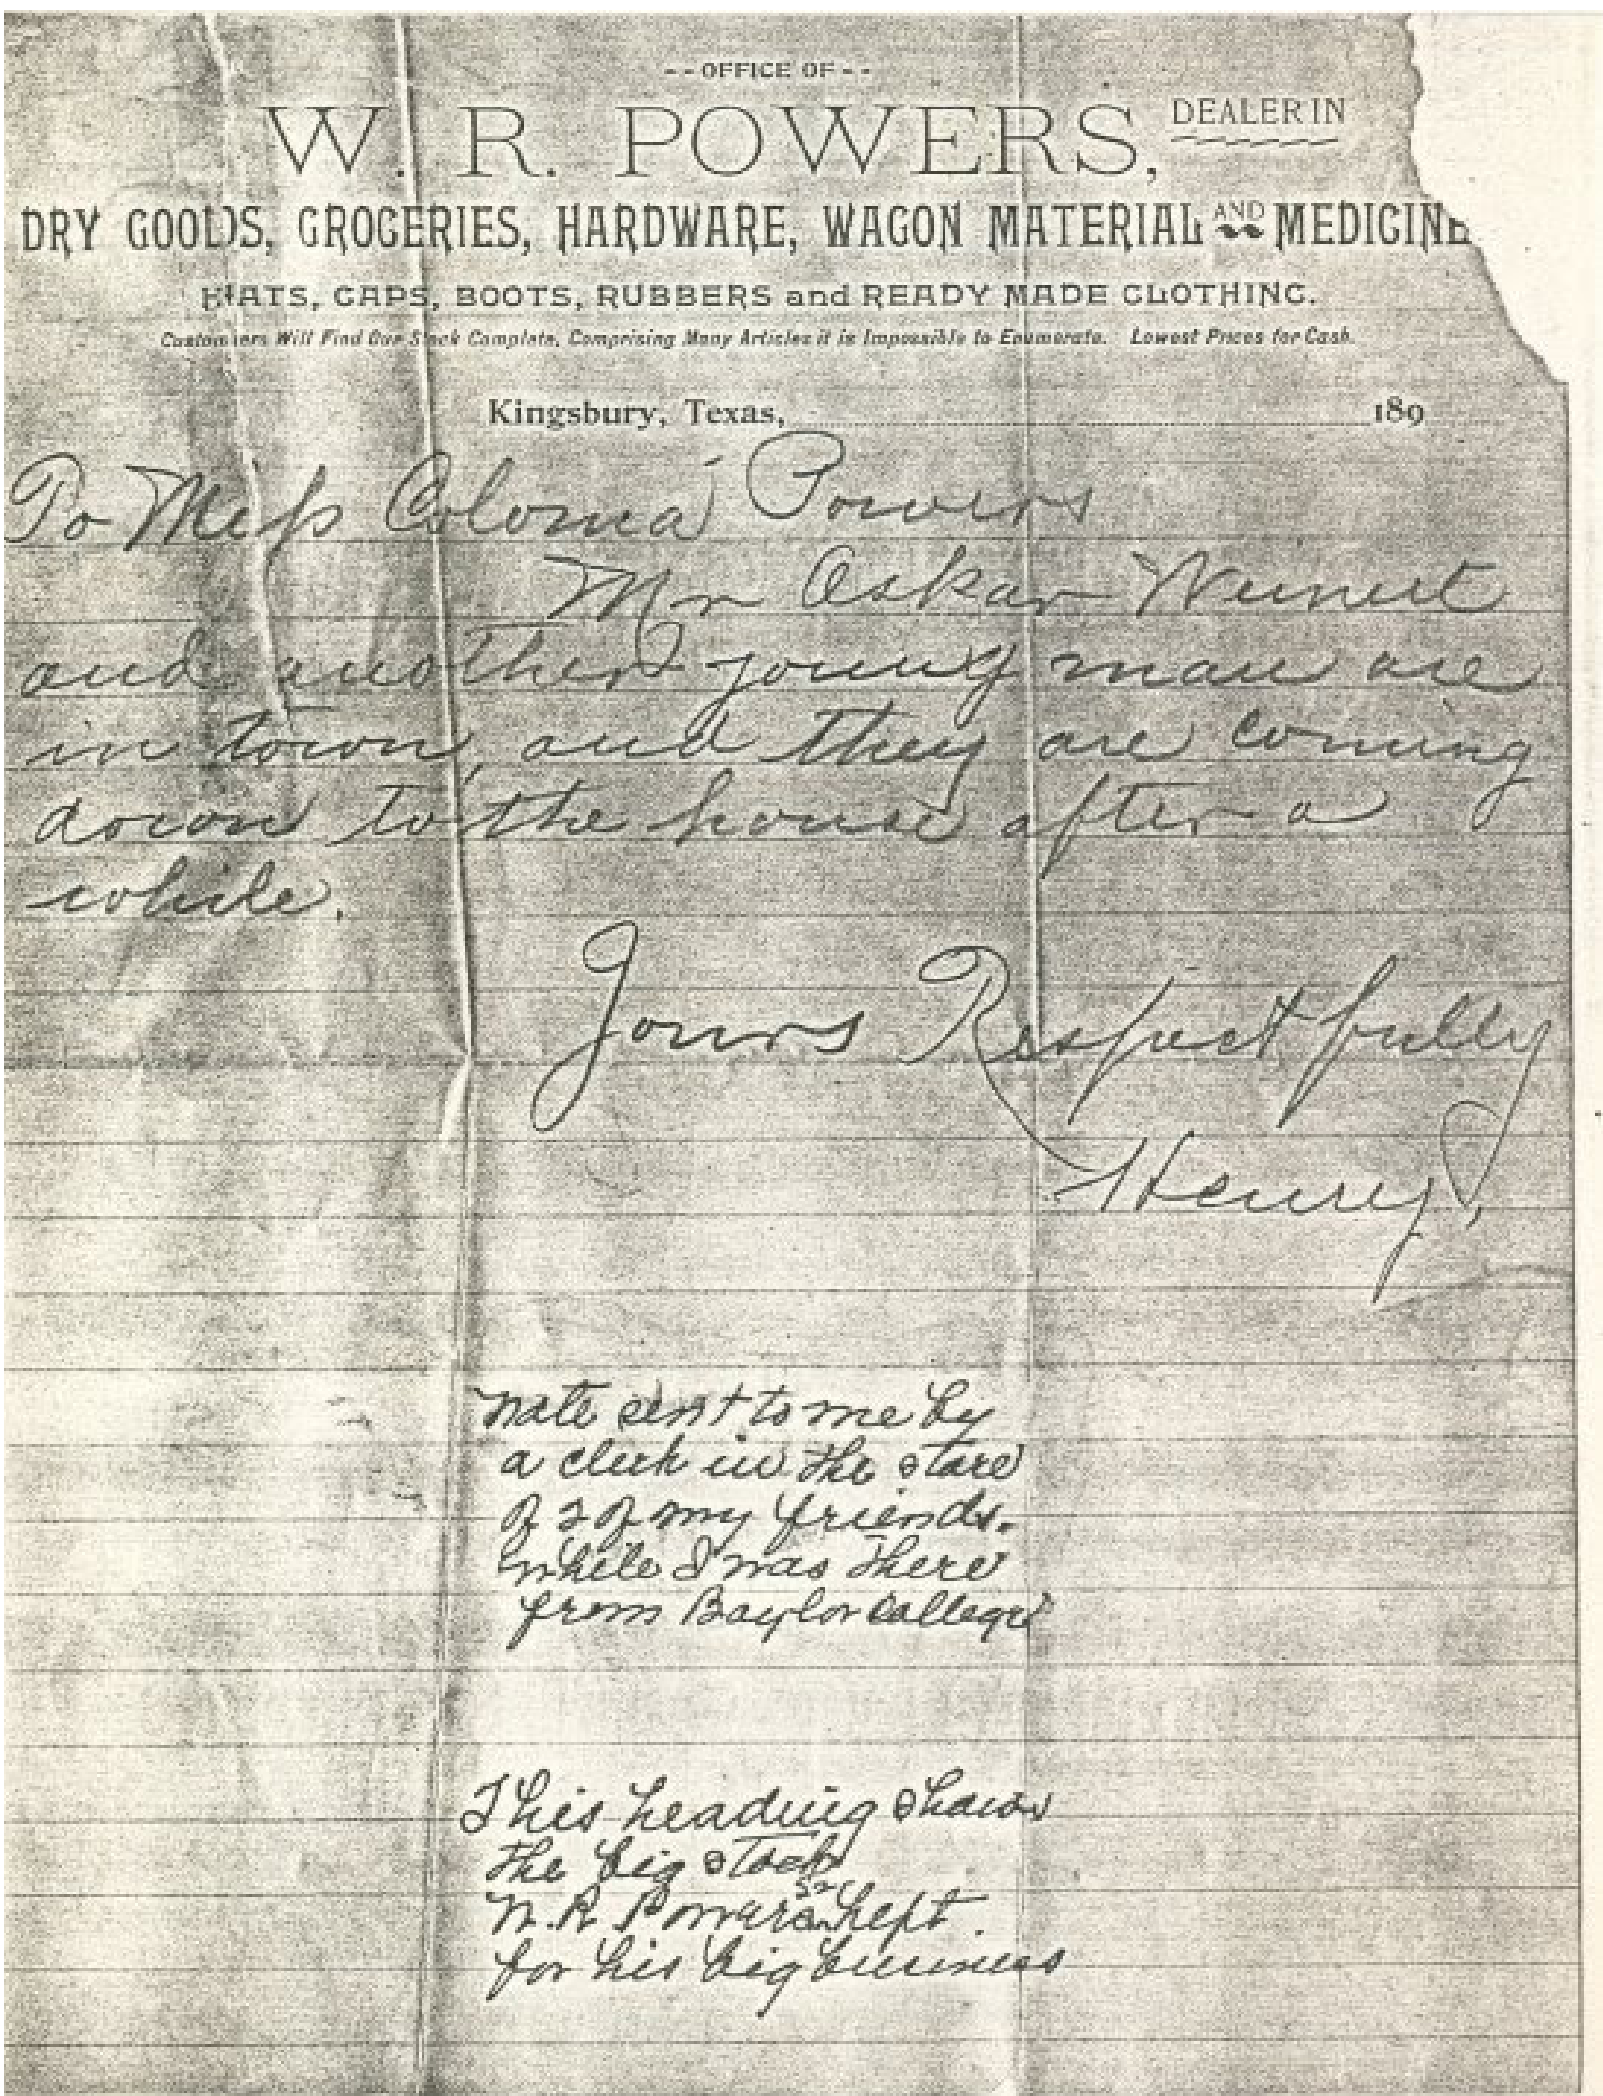 -- OFFICE OF --
W. R. POWERS, DEALER IN
DRY GOODS, GROCERIES, HARDWARE, WAGON MATERIAL AND MEDICINE
HATS, CAPS, BOOTS, RUBBERS and READY MADE CLOTHING.
Customers Will Find Our Stock Complete, Comprising Many Articles it is Impossible to Enumerate. Lowest Prices for Cash.
Kingsbury, Texas, 189
To Miss Coloma Powers
Mr Oskar Weinert
and another young man are
in town, and they are coming
down to the house after a
while.
Yours Respectfully
Henry,
Note sent to me by
a clerk in the store
of 2 of my friends.
While I was there
from Baylor College
This heading shows
the big stock
W. R. Powers Sr. kept
for his big business